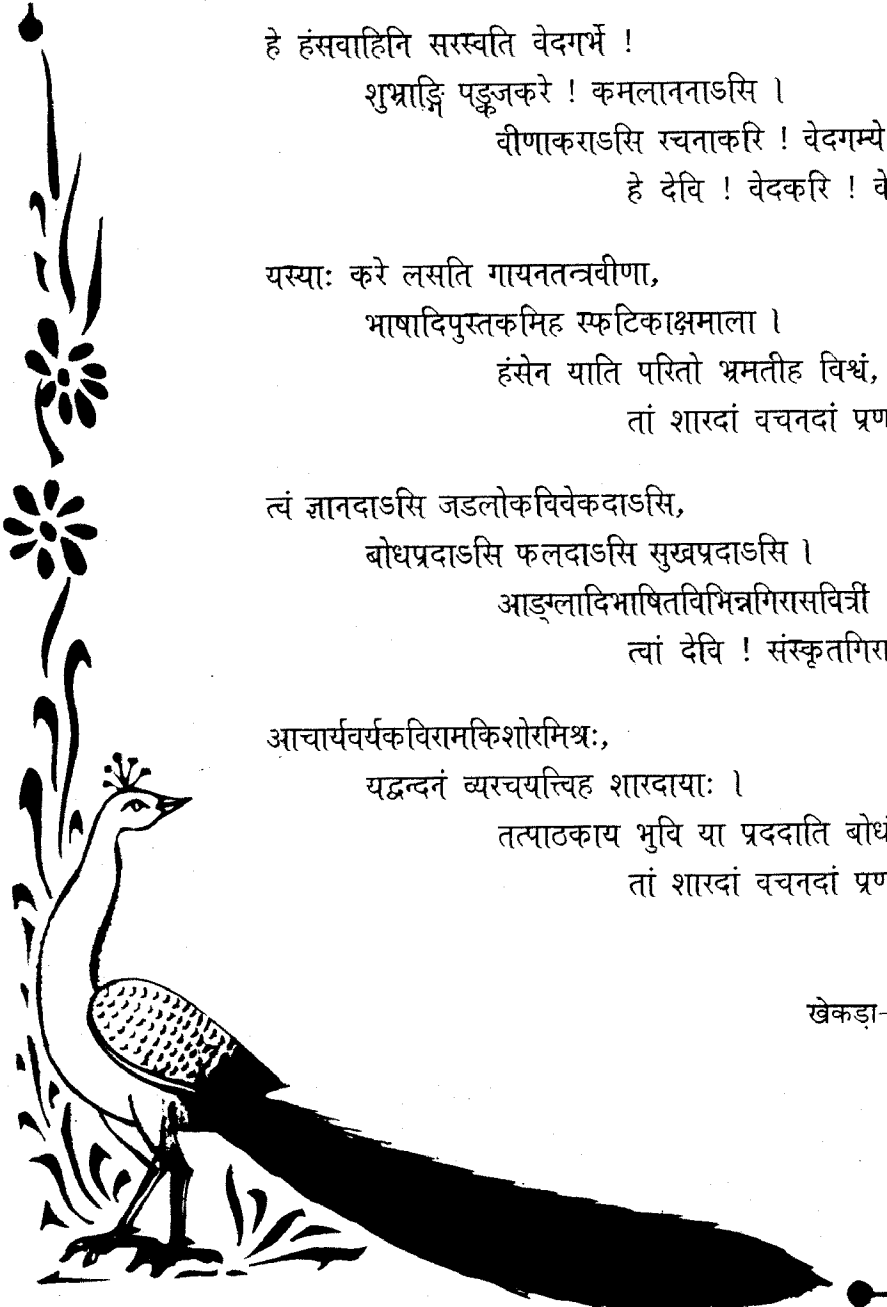 हे हंसवाहिनि सरस्वति वेदगर्भे !
शुभ्राङ्गि पङ्कजकरे ! कमलाननाऽसि ।
वीणाकराऽसि रचनाकरि ! वेदगम्ये
हे देवि ! वेदकरि !
यस्याः करे लसति गायनतन्त्रवीणा,
भाषादिपुस्तकमिह स्फटिकाक्षमाला ।
हंसेन याति परितो भ्रमतीह विश्वं,
तां शारदां वचनदां
त्वं ज्ञानदाऽसि जडलोकविवेकदाऽसि,
बोधप्रदाऽसि फलदाऽसि सुखप्रदाऽसि ।
आङ्ग्लादिभाषितविभिन्नगिरासवित्रीं
त्वां देवि ! संस्कृतगिरा
आचार्यवर्यकविरामकिशोरमिश्रः,
यद्वन्दनं व्यरचयत्त्विह शारदायाः ।
तत्पाठकाय भुवि या प्रददाति बोधं
तां शारदां वचनदां
खेकड़ा-